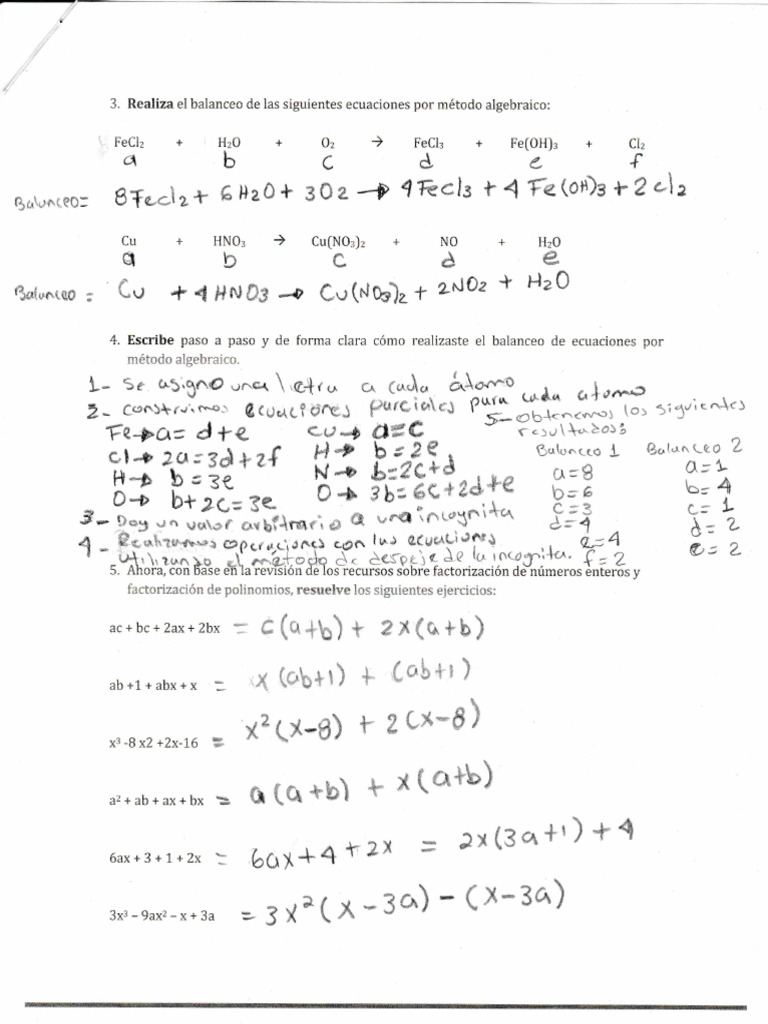 3. Realiza el balanceo de las siguientes ecuaciones por método algebraico:
FeCl₂ + H₂O + O₂ → FeCl₃ + Fe(OH)₃ + Cl₂
a b c d e f
Balanceo= 8FeCl2 + 6H2O + 3O2 → 4FeCl3 + 4Fe(OH)3 + 2Cl2
Cu + HNO₃ → Cu(NO₃)₂ + NO + H₂O
a b c d e
Balanceo = Cu + 4HNO3 → Cu(NO3)2 + 2NO2 + H2O
4. Escribe paso a paso y de forma clara cómo realizaste el balanceo de ecuaciones por
método algebraico.
1- Se asigno una letra a cada átomo
2- construimos ecuaciones parciales para cada atomo
Fe→a=d+e Cu→a=c
Cl→2a=3d+2f H→b=2e
H→b=3e N→b=2c+d
O→b+2c=3e O→3b=6c+2d+e
3- Doy un valor arbitrario a una incognita
4- Realizamos operaciones con las ecuaciones
utilizando el método de despeje de la incognita.
5- obtenemos los siguientes
resultados:
Balanceo 1 Balanceo 2
a=8 a=1
b=6 b=4
c=3 c=1
d=4 d=2
e=4 e=2
f=2
5. Ahora, con base en la revisión de los recursos sobre factorización de números enteros y
factorización de polinomios, resuelve los siguientes ejercicios:
ac + bc + 2ax + 2bx = c(a+b) + 2x(a+b)
ab +1 + abx + x = x(ab+1) + (ab+1)
x³ -8 x2 +2x-16 = x²(x-8) + 2(x-8)
a² + ab + ax + bx = a(a+b) + x(a+b)
6ax + 3 + 1 + 2x = 6ax+4+2x = 2x(3a+1)+4
3x³ – 9ax² – x + 3a = 3x²(x-3a) - (x-3a)